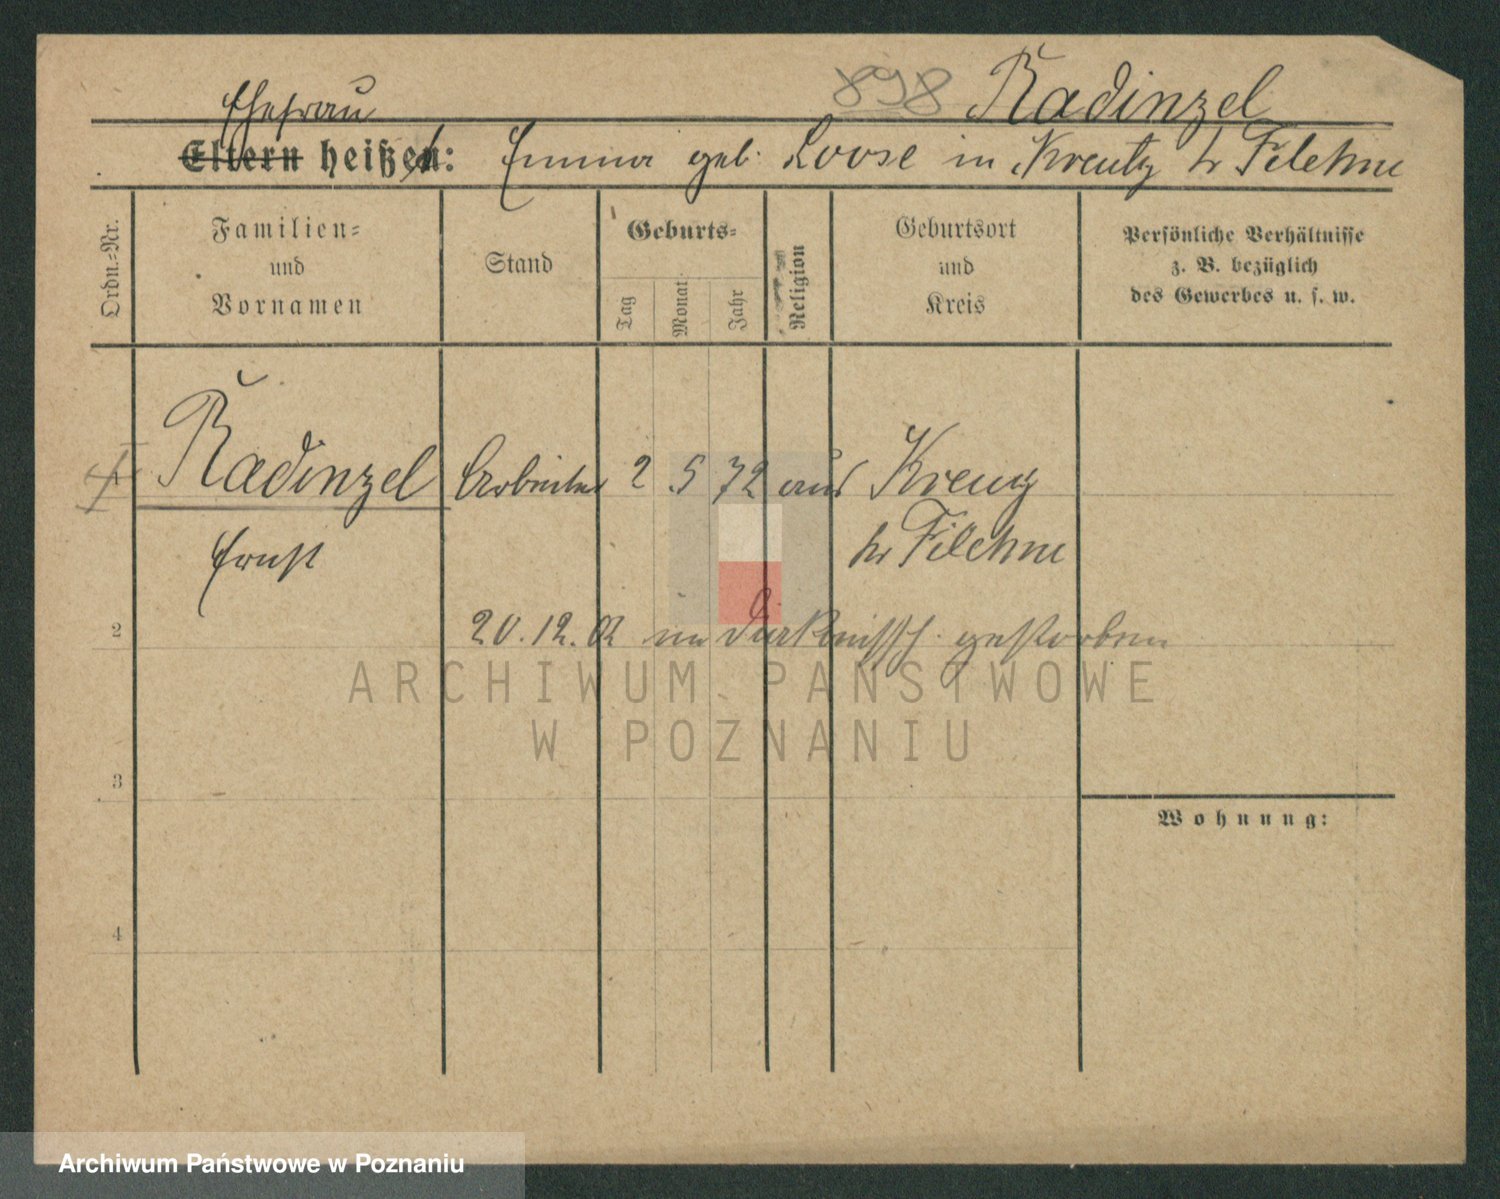 898 Radinzel
Ehefrau
Eltern heißen: Emma geb. Loose in Kreutz Kr Filehne
Ordn.-Nr.
Familien-
und
Vornamen
Stand
Geburts-
Tag
Monat
Jahr
Religion
Geburtsort
und
Kreis
Persönliche Verhältnisse
z. B. bezüglich
des Gewerbes u. s. w.
Radinzel Arbeiter 2 5 72 aus Kreuz
Ernst Kr Filehne
2 20.12.02 im gestorben
3
4
Wohnung:
ARCHIWUM PAŃSTWOWE
W POZNANIU
Archiwum Państwowe w Poznaniu